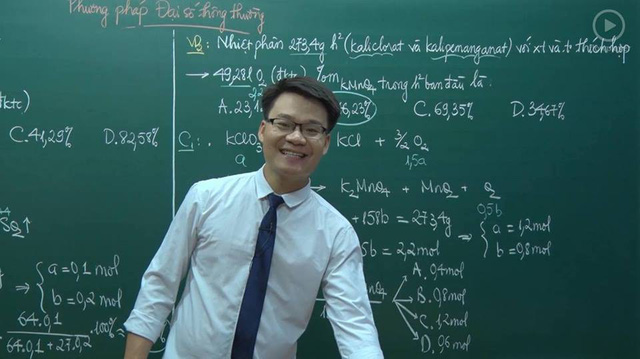 Phương pháp Đại số thông thường
VD3: Nhiệt phân 273,4g h² (kaliclorat và kalipemanganat) với xt và t° thích hợp
→ 49,28l O₂ (đktc). %m KMnO₄ trong h² ban đầu là:
2,2
A. 23,1 6,23% C. 69,35% D. 34,67%
ktc)
C. 41,29% D. 82,58%
C₁: KClO₃ KCl + 3/2 O₂
a 1,5a
→ K₂MnO₄ + MnO₂ + O₂
0,5b
+ 158b = 273,4g
5b = 2,2mol
⇒ { a = 1,2mol
b = 0,8mol
SO₂↑
⇒ { a = 0,1 mol
b = 0,2 mol
64.0,1
64.0,1 + 27.0,2
.100%
A. 0,4mol
B. 0,8mol
C. 1,2mol
D. 0,6mol